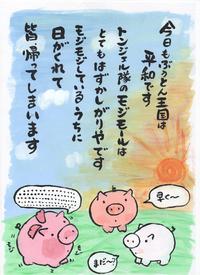 今日もぶうとん王国は
平和です
トンジェル隊のモジモールは
とてもはずかしがりやです
モジモジしているうちに
日がくれて
皆帰ってしまいます
早く〜
まだ〜?